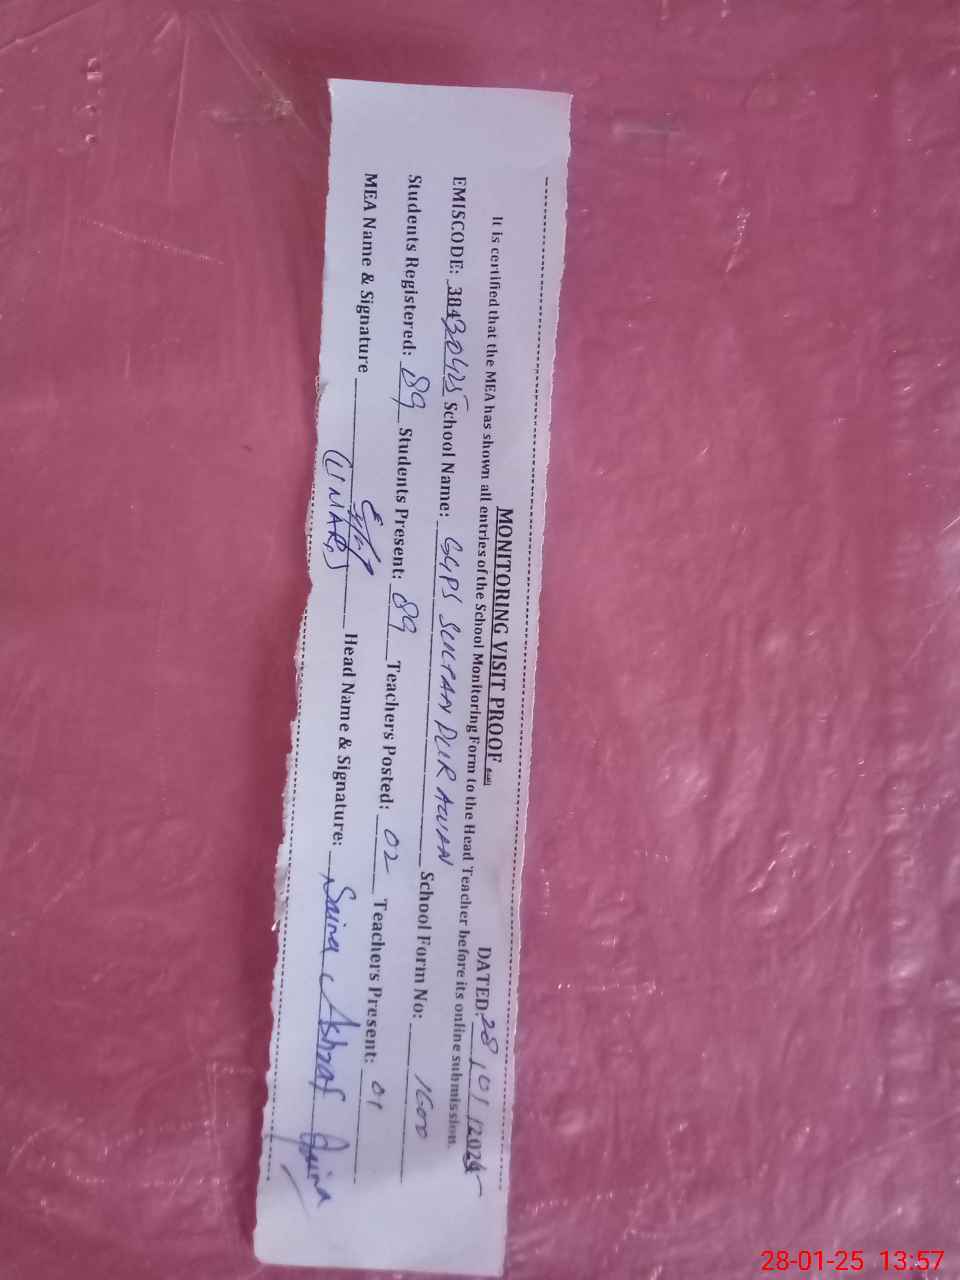 MONITORING VISIT PROOF
DATED: 28/01/2025
It is certified that the MEA has shown all entries of the School Monitoring Form to the Head Teacher before its online submission.
EMISCODE: 38430425 School Name: GGPS SULTAN PUR AWAN School Form No: 1600
Students Registered: 89 Students Present: 89 Teachers Posted: 02 Teachers Present: 01
MEA Name & Signature (UMAR) Head Name & Signature: Saima Ashraf Saima
28-01-25 13:57